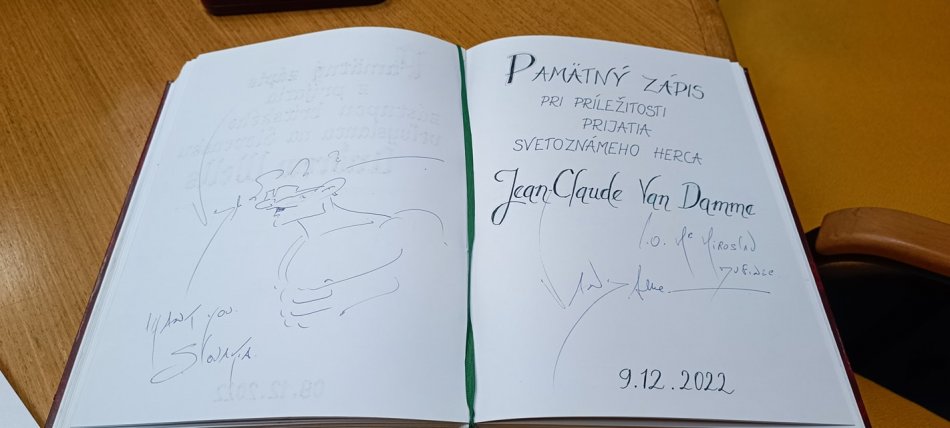 THANK YOU.
SLOVAKIA.
PAMÄTNÝ ZÁPIS
PRI PRÍLEŽITOSTI
PRIJATIA
SVETOZNÁMEHO HERCA
Jean-Claude Van Damme
Mr MIROSLAV
9.12.2022